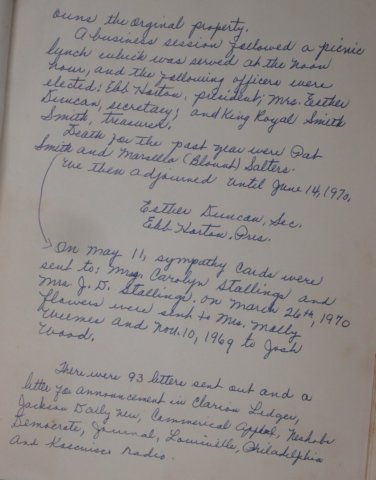 owns the orginal property.
A business session followed a picnic
lunch which was served at the noon
hour, and the following officers were
elected: Ebb Horton, president; Mrs. Esther
Duncan, secretary; and King Royal Smith
Smith, treasurer.
Death for the past year were Pat
Smith and Marsella (Blount) Salters.
We then adjourned until June 14, 1970.
Esther Duncan, Sec.
Ebb Horton, Pres.
On May 11, sympathy cards were
sent to: Mrs. Carolyn Stallings and
Mrs. J. D. Stallings. On March 26th, 1970
flowers were sent to Mrs. Molly
Weemes and Nov. 10, 1969 to Josh
Wood.
There were 93 letters sent out and a
letter for announcement in Clarion Ledger,
Jackson Daily New, Commerical Appeal, Neshoba
Democrate, Journal, Louisville, Philadelphia
and Kosciusko radio.